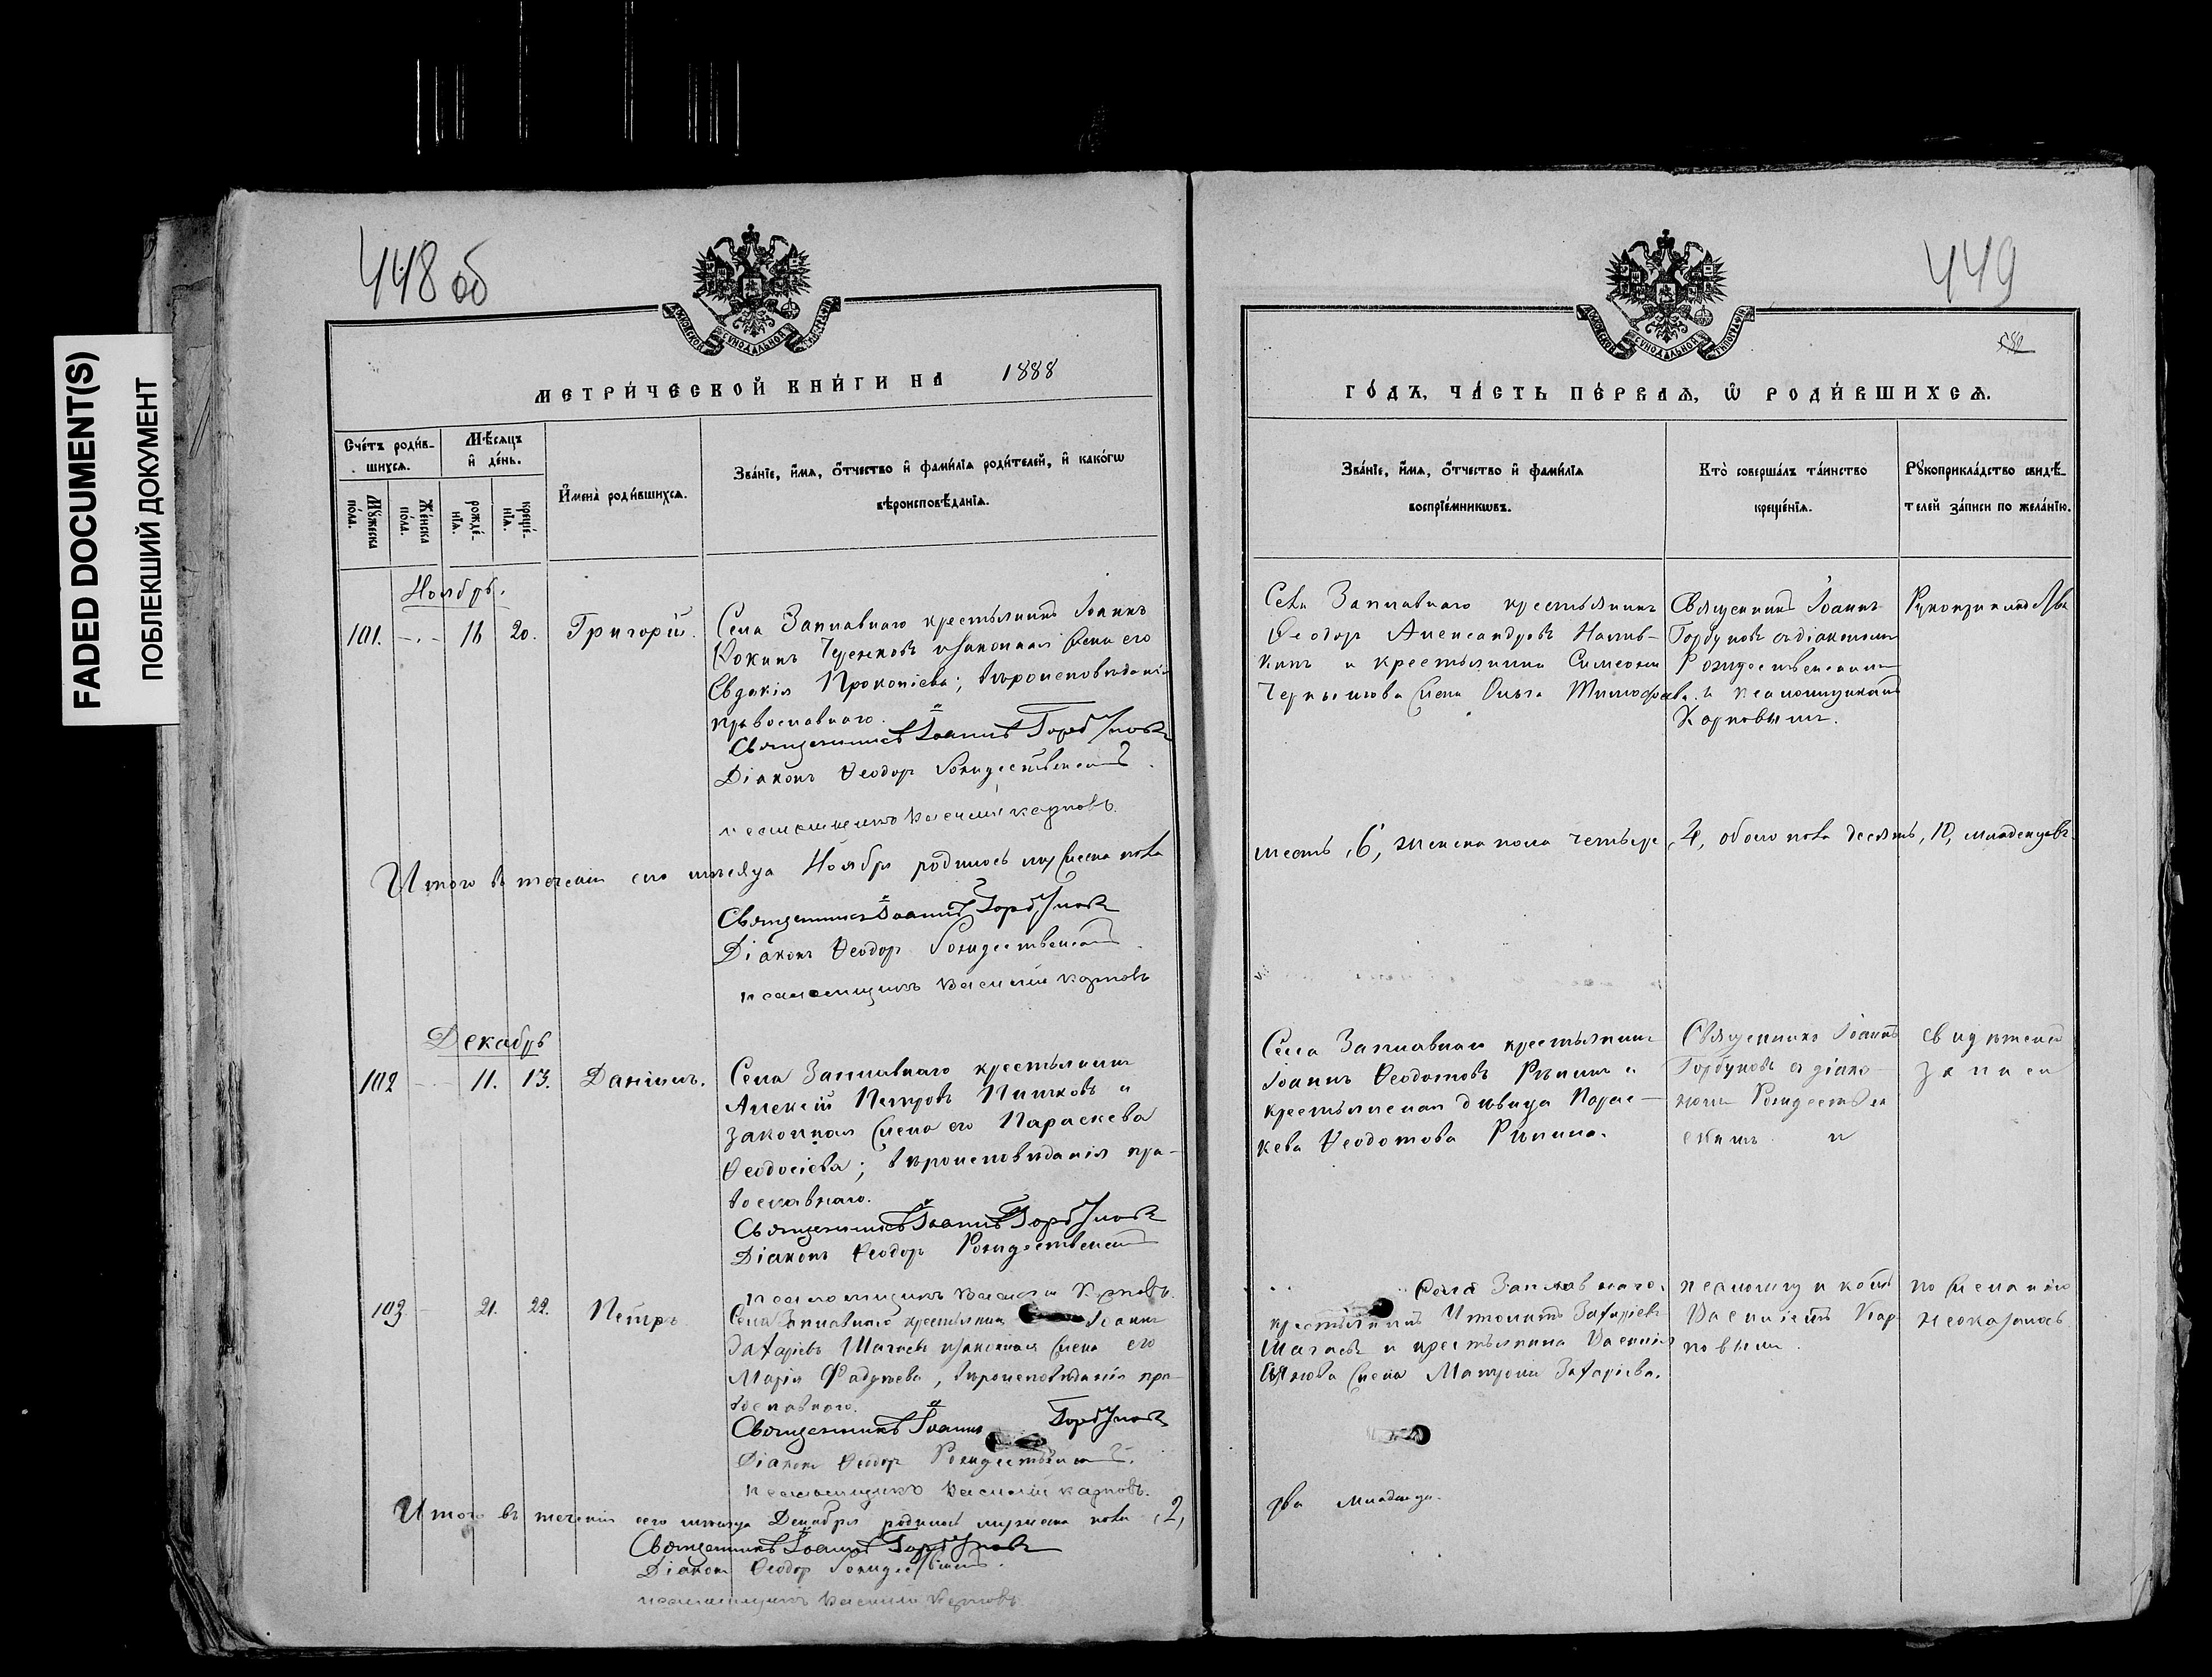 FADED DOCUMENT(S)
ПОБЛЕКШИЙ ДОКУМЕНТ
448 об
МЕТРИЧЕСКОЙ КНИГИ НА 1888
Счетъ родив-
шихся.
Мѣсяцъ
и день.
Мужеска
пола.
Женска
пола.
рожде-
нія.
креще-
нія.
Имена родившихся.
Званіе, имя, отчество и фамилія родителей, и какогѡ
вѣроисповѣданія.
Ноябрь.
101. 18 20. Григорій.
Села Заплавнаго крестьянинъ Іоаннъ
и законная жена его
Евдокія Прокопіева; вѣроисповѣданія
православнаго.
Священникъ Іоаннъ Горбуновъ
Діаконъ Ѳеодор Рождественскій
псаломщикъ Василій Карповъ.
Итого въ теченіи сего мѣсяца Ноября родилось мужеска пола
Священникъ Іоаннъ Горбуновъ
Діаконъ Ѳеодор Рождественскій
псаломщикъ Василій Карповъ
Декабрь
102 11. 13. Даніилъ.
Села Заплавнаго крестьянинъ
Алексій Петровъ Пичковъ и
законная жена его Параскева
Ѳеодосіева; вѣроисповѣданія пра-
вославнаго.
Священникъ Іоаннъ Горбуновъ
Діаконъ Ѳеодор Рождественскій
псаломщикъ Василій Карповъ.
103 21. 22. Петръ
Села Заплавнаго крестьянинъ Іоаннъ
Захаріевъ Шагаевъ и законная жена его
Марія Фадѣева, вѣроисповѣданія пра-
вославнаго.
Священникъ Іоаннъ Горбуновъ
Діаконъ Ѳеодор Рождественскій.
псаломщикъ Василій Карповъ.
Итого въ теченіи сего мѣсяца Декабря родилось мужеска пола, 2,
Священникъ Іоаннъ Горбуновъ
Діаконъ Ѳеодор Рождественскій.
псаломщикъ Василій Карповъ
449
ГОДЪ, ЧАСТЬ ПЕРВАЯ, Ѡ РОДИВШИХСЯ.
Званіе, имя, отчество и фамилія
воспріемникѡвъ.
Кто совершалъ таинство
крещенія.
Рукоприкладство свидѣ-
телей записи по желанію.
Села Заплавнаго крестьянинъ
Ѳеодор Александровъ Налив-
кинъ и крестьянина Симеона
Чернышова жена Ольга Тимофеева.
Священникъ Іоаннъ
Горбуновъ съ діакономъ
Рождественскимъ
и псаломщикомъ
Карповымъ.
Рукоприкладства
шесть, 6, женска пола четыре, 4, обоего пола десять, 10, младенцевъ.
Села Заплавнаго крестьянинъ
Іоаннъ Ѳеодотовъ Рѣпинъ и
крестьянская дѣвица Парас-
кева Ѳеодотова Рѣпина.
Священникъ Іоаннъ
Горбуновъ съ діако-
номъ Рождествен
скимъ и
свидѣтелей
записи
Села Заплавнаго
крестьянинъ Захаріевъ
Шагаевъ и крестьянина Василія
жена Матрона Захаріева.
псаломщикомъ
Василіемъ Кар
повымъ.
по желанію
не оказалось.
два младенца.